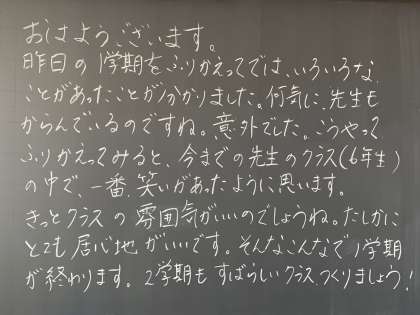 おはようございます。
昨日の1学期をふりかえってでは、いろいろな
ことがあったことが分かりました。何気に、先生も
からんでいるのですね。意外でした。こうやって
ふりかえってみると、今までの先生のクラス(6年生)
の中で、一番、笑いがあったように思います。
きっとクラスの雰囲気がいいのでしょうね。たしかに
とても居心地がいいです。そんなこんなで1学期
が終わります。2学期もすばらしいクラス、つくりましょう!